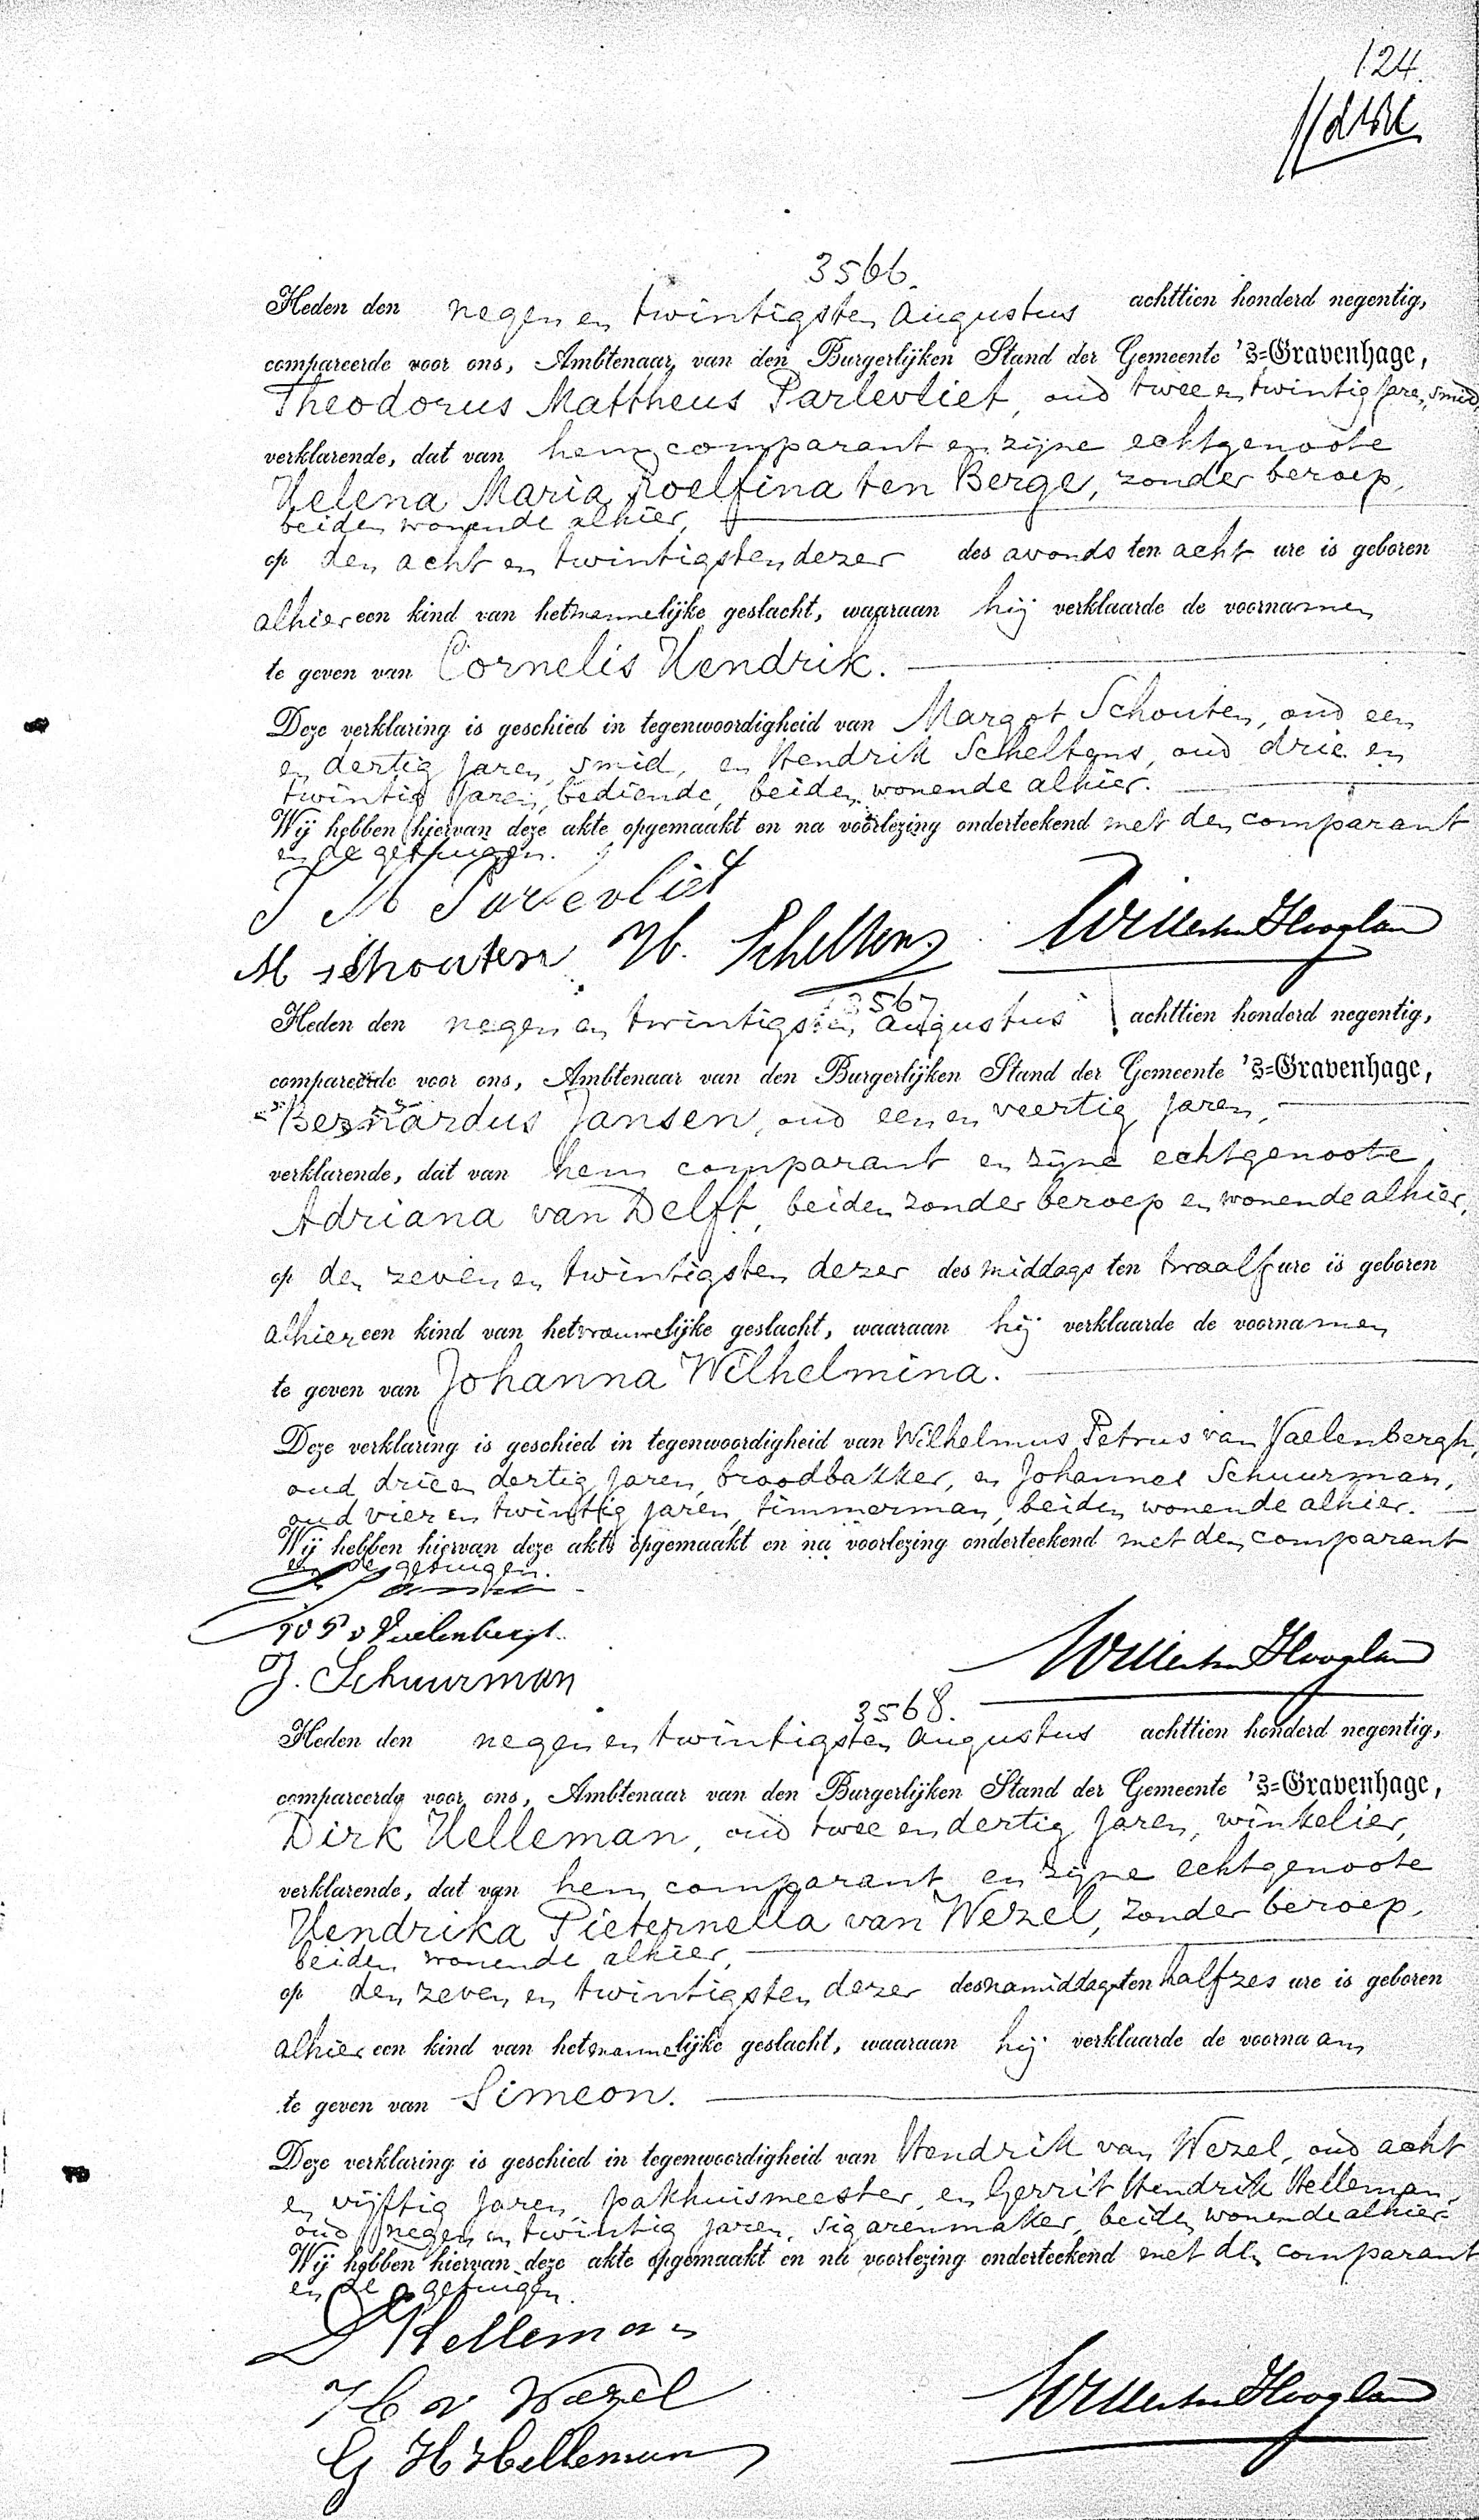 124.
3566.
Heden den negen en twintigsten Augustus achttien honderd negentig,
compareerde voor ons, Ambtenaar van den Burgerlijken Stand der Gemeente 's=Gravenhage,
Theodorus Mattheus Parlevliet, oud twee en twintig jaren, smid,
verklarende, dat van hem comparant en zijne echtgenoote
Helena Maria Roelfina ten Berge, zonder beroep,
beiden wonende alhier,
op den acht en twintigsten dezer des avonds ten acht ure is geboren
alhier een kind van het mannelijke geslacht, waaraan hij verklaarde de voornamen
te geven van Cornelis Hendrik.
Deze verklaring is geschied in tegenwoordigheid van Margot Schouten, oud een
en dertig jaren, smid, en Hendrik Scheltens, oud drie en
twintig jaren, bediende, beiden wonende alhier.
Wij hebben hiervan deze akte opgemaakt en na voorlezing onderteekend met den comparant
en de getuigen.
T M Parlevliet
M Schouten H. Scheltens
3567
Heden den negen en twintigsten Augustus achttien honderd negentig,
compareerde voor ons, Ambtenaar van den Burgerlijken Stand der Gemeente 's=Gravenhage,
Bernardus Jansen, oud een en veertig jaren,
verklarende, dat van hem comparant en zijne echtgenoote,
Adriana van Delft, beiden zonder beroep en wonende alhier,
op den zeven en twintigsten dezer des middags ten twaalf ure is geboren
alhier een kind van het vrouwelijke geslacht, waaraan hij verklaarde de voornamen
te geven van Johanna Wilhelmina.
Deze verklaring is geschied in tegenwoordigheid van Wilhelmus Petrus van Vaelenbergh,
oud drie en dertig jaren, broodbakker, en Johannes Schuurman,
oud vier en twintig jaren, timmerman, beiden wonende alhier.
Wij hebben hiervan deze akte opgemaakt en na voorlezing onderteekend met den comparant
en de getuigen.
J. Schuurman
3568.
Heden den negen en twintigsten Augustus achttien honderd negentig,
compareerde voor ons, Ambtenaar van den Burgerlijken Stand der Gemeente 's=Gravenhage,
Dirk Helleman, oud twee en dertig jaren, winkelier,
verklarende, dat van hem comparant en zijne echtgenoote
Hendrika Pieternella van Wezel, zonder beroep,
beiden wonende alhier,
op den zeven en twintigsten dezer des namiddags ten half zes ure is geboren
alhier een kind van het mannelijke geslacht, waaraan hij verklaarde de voornaam
te geven van Simeon.
Deze verklaring is geschied in tegenwoordigheid van Hendrik van Wezel, oud acht
en vijftig jaren, pakhuismeester, en Gerrit Hendrik Helleman,
oud negen en twintig jaren, sigarenmaker, beiden wonende alhier.
Wij hebben hiervan deze akte opgemaakt en na voorlezing onderteekend met den comparant
en de getuigen.
D Helleman
H v Wezel
G H Helleman